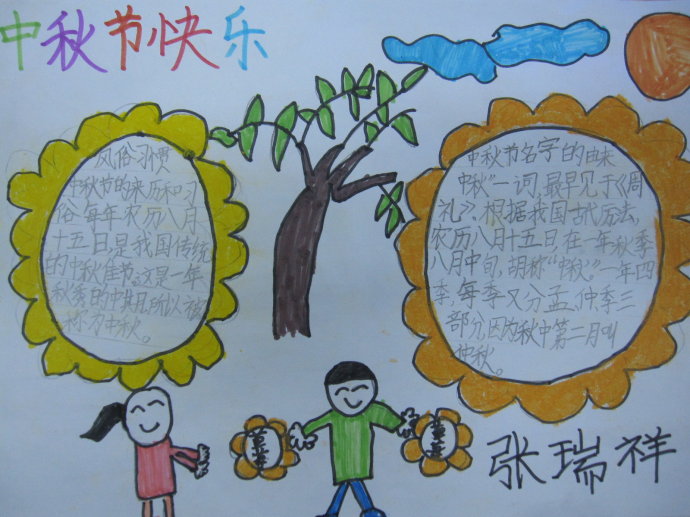 中秋节快乐
风俗习惯
中秋节的来历和习
俗每年农历八月
十五日是我国传统
的中秋佳节。这是一年
秋季的中期,所以被
称为中秋。
中秋节名字的由来
中秋”一词,最早见于《周
礼》。根据我国古代历法,
农历八月十五日,在一年秋季
八月中旬,胡称“中秋。”一年四
季,每季又分孟、仲、季三
部分,因为秋中第二月叫
仲秋。
张瑞祥